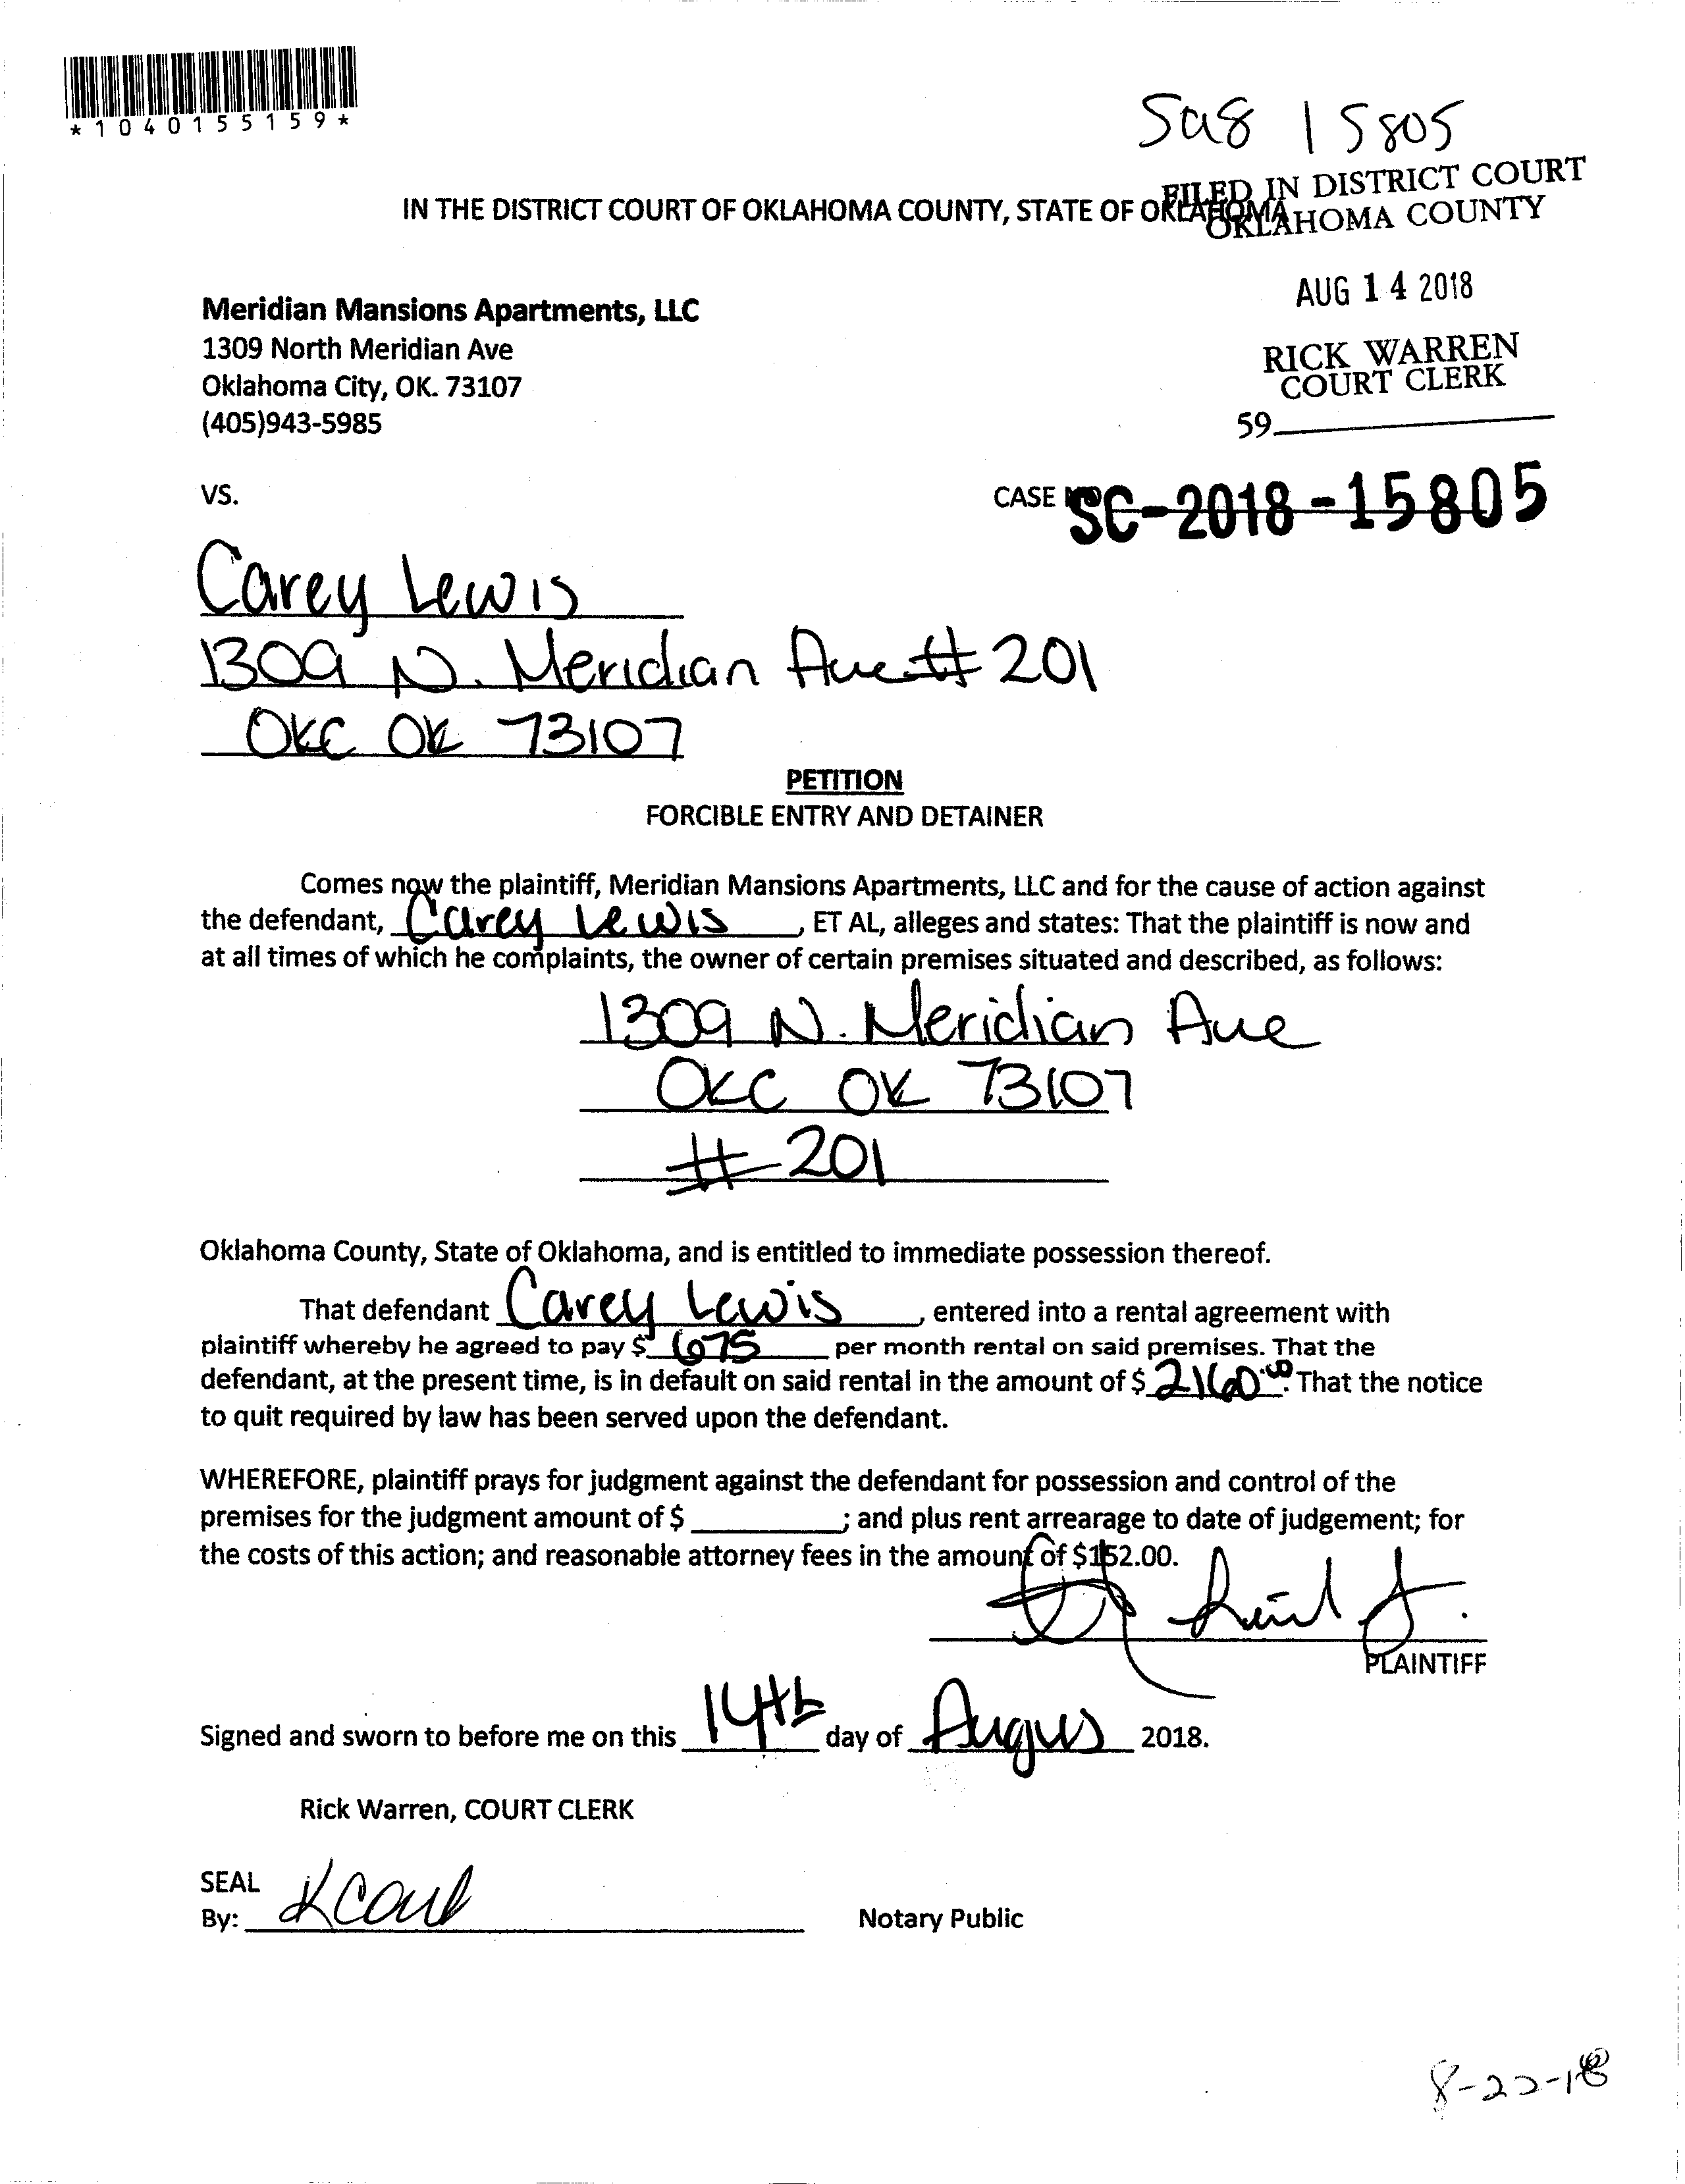 *1040155159*
Sa8 15805
IN THE DISTRICT COURT OF OKLAHOMA COUNTY, STATE OF OKLAHOMA
FILED IN DISTRICT COURT
OKLAHOMA COUNTY
AUG 14 2018
RICK WARREN
COURT CLERK
59
Meridian Mansions Apartments, LLC
1309 North Meridian Ave
Oklahoma City, OK. 73107
(405)943-5985
VS.
CASE NO SC-2018-15805
Carey Lewis
1309 N. Meridian Ave # 201
OKC OK 73107
PETITION
FORCIBLE ENTRY AND DETAINER
Comes now the plaintiff, Meridian Mansions Apartments, LLC and for the cause of action against
the defendant, Carey Lewis, ET AL, alleges and states: That the plaintiff is now and
at all times of which he complaints, the owner of certain premises situated and described, as follows:
1309 N. Meridian Ave
OKC OK 73107
# 201
Oklahoma County, State of Oklahoma, and is entitled to immediate possession thereof.
That defendant Carey Lewis, entered into a rental agreement with
plaintiff whereby he agreed to pay $ 675 per month rental on said premises. That the
defendant, at the present time, is in default on said rental in the amount of $ 2160.00. That the notice
to quit required by law has been served upon the defendant.
WHEREFORE, plaintiff prays for judgment against the defendant for possession and control of the
premises for the judgment amount of $ __________; and plus rent arrearage to date of judgement; for
the costs of this action; and reasonable attorney fees in the amount of $152.00.
PLAINTIFF
Signed and sworn to before me on this 14th day of Augus 2018.
Rick Warren, COURT CLERK
SEAL
By:
Notary Public
8-22-18